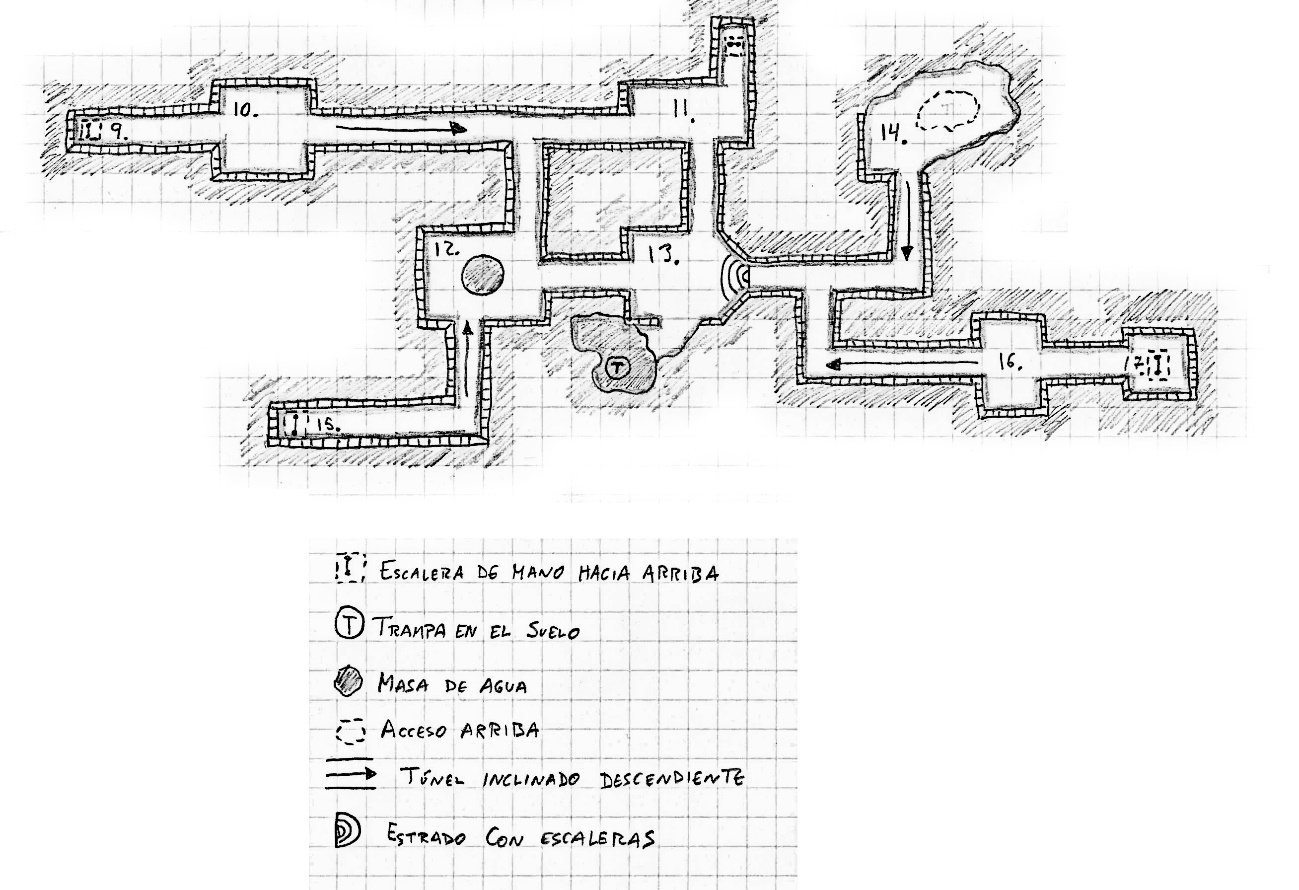 9.
10.
11.
14.
12.
13.
16.
17.
15.
T
ESCALERA DE MANO HACIA ARRIBA
T TRAMPA EN EL SUELO
MASA DE AGUA
ACCESO ARRIBA
TÚNEL INCLINADO DESCENDIENTE
ESTRADO CON ESCALERAS